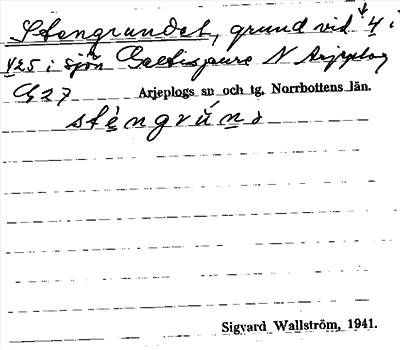 Stengrundet, grund vid 4 i
V25 i sjön Galtisjaure N Arjeplog
G27 Arjeplogs sn och tg, Norrbottens län.
stèngrún̲d
Sigvard Wallström, 1941.